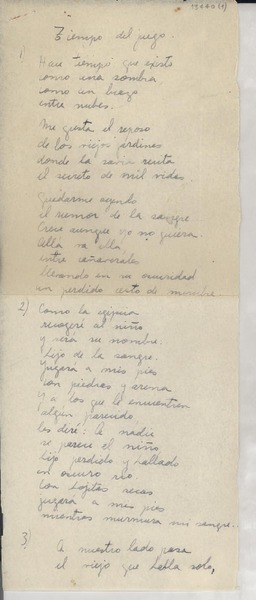 Tiempo del juego.
1) Hace tiempo que existo
como una sombra
como un brazo
entre nubes.
Me gusta el reposo
de los viejos jardines
donde la savia
el secreto de mil vidas.
Quedarme oyendo
el rumor de la sangre
Crece aunque yo no quiera.
Ella va
entre cañaverales
llevando en su oscuridad
un perdido cesto de
2) Como la
recogeré al niño
y será su nombre:
Hijo de la sangre.
Jugará a mis pies
con piedras y arena
y a los que le encuentren
algún parecido
les diré: A nadie
se parece el niño
Hijo perdido y hallado
en oscuro río.
Con hojitas secas
jugará a mis pies
mientras murmura mi sangre.
3) A nuestro lado pasa
el viejo que habla solo,